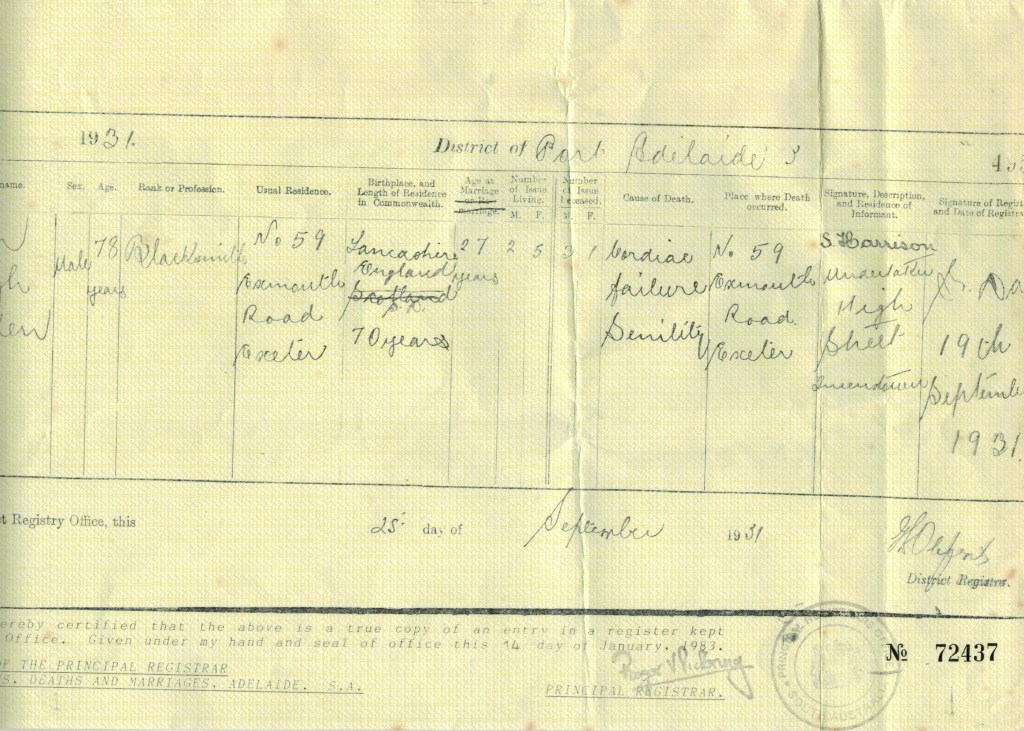 1931. District of Port Adelaide 3
name. Sex. Age. Rank or Profession. Usual Residence. Birthplace, and Length of Residence in Commonwealth. Age at Marriage or Re-marriage. Number of Issue Living. M. F. Number of Issue Deceased. M. F. Cause of Death. Place where Death occurred. Signature, Description, and Residence of Informant. Signature of Regist and Date of Registra
Male
78 years
Blacksmith
No 59
Exmouth
Road
Exeter
Lancashire
England
Scotland
70 years
27 years
2 5
3 1
Cordiac
failure
Senility
No 59
Exmouth
Road.
Exeter
S. Harrison
Undertaker
High
Street
Queenstown
19th
Septembe
1931.
t Registry Office, this 25 day of September 1931
District Registrar.
ereby certified that the above is a true copy of an entry in a register kept
Office. Given under my hand and seal of office this 14 day of January, 1983.
OF THE PRINCIPAL REGISTRAR
S, DEATHS AND MARRIAGES, ADELAIDE. S.A.
PRINCIPAL REGISTRAR.
№ 72437